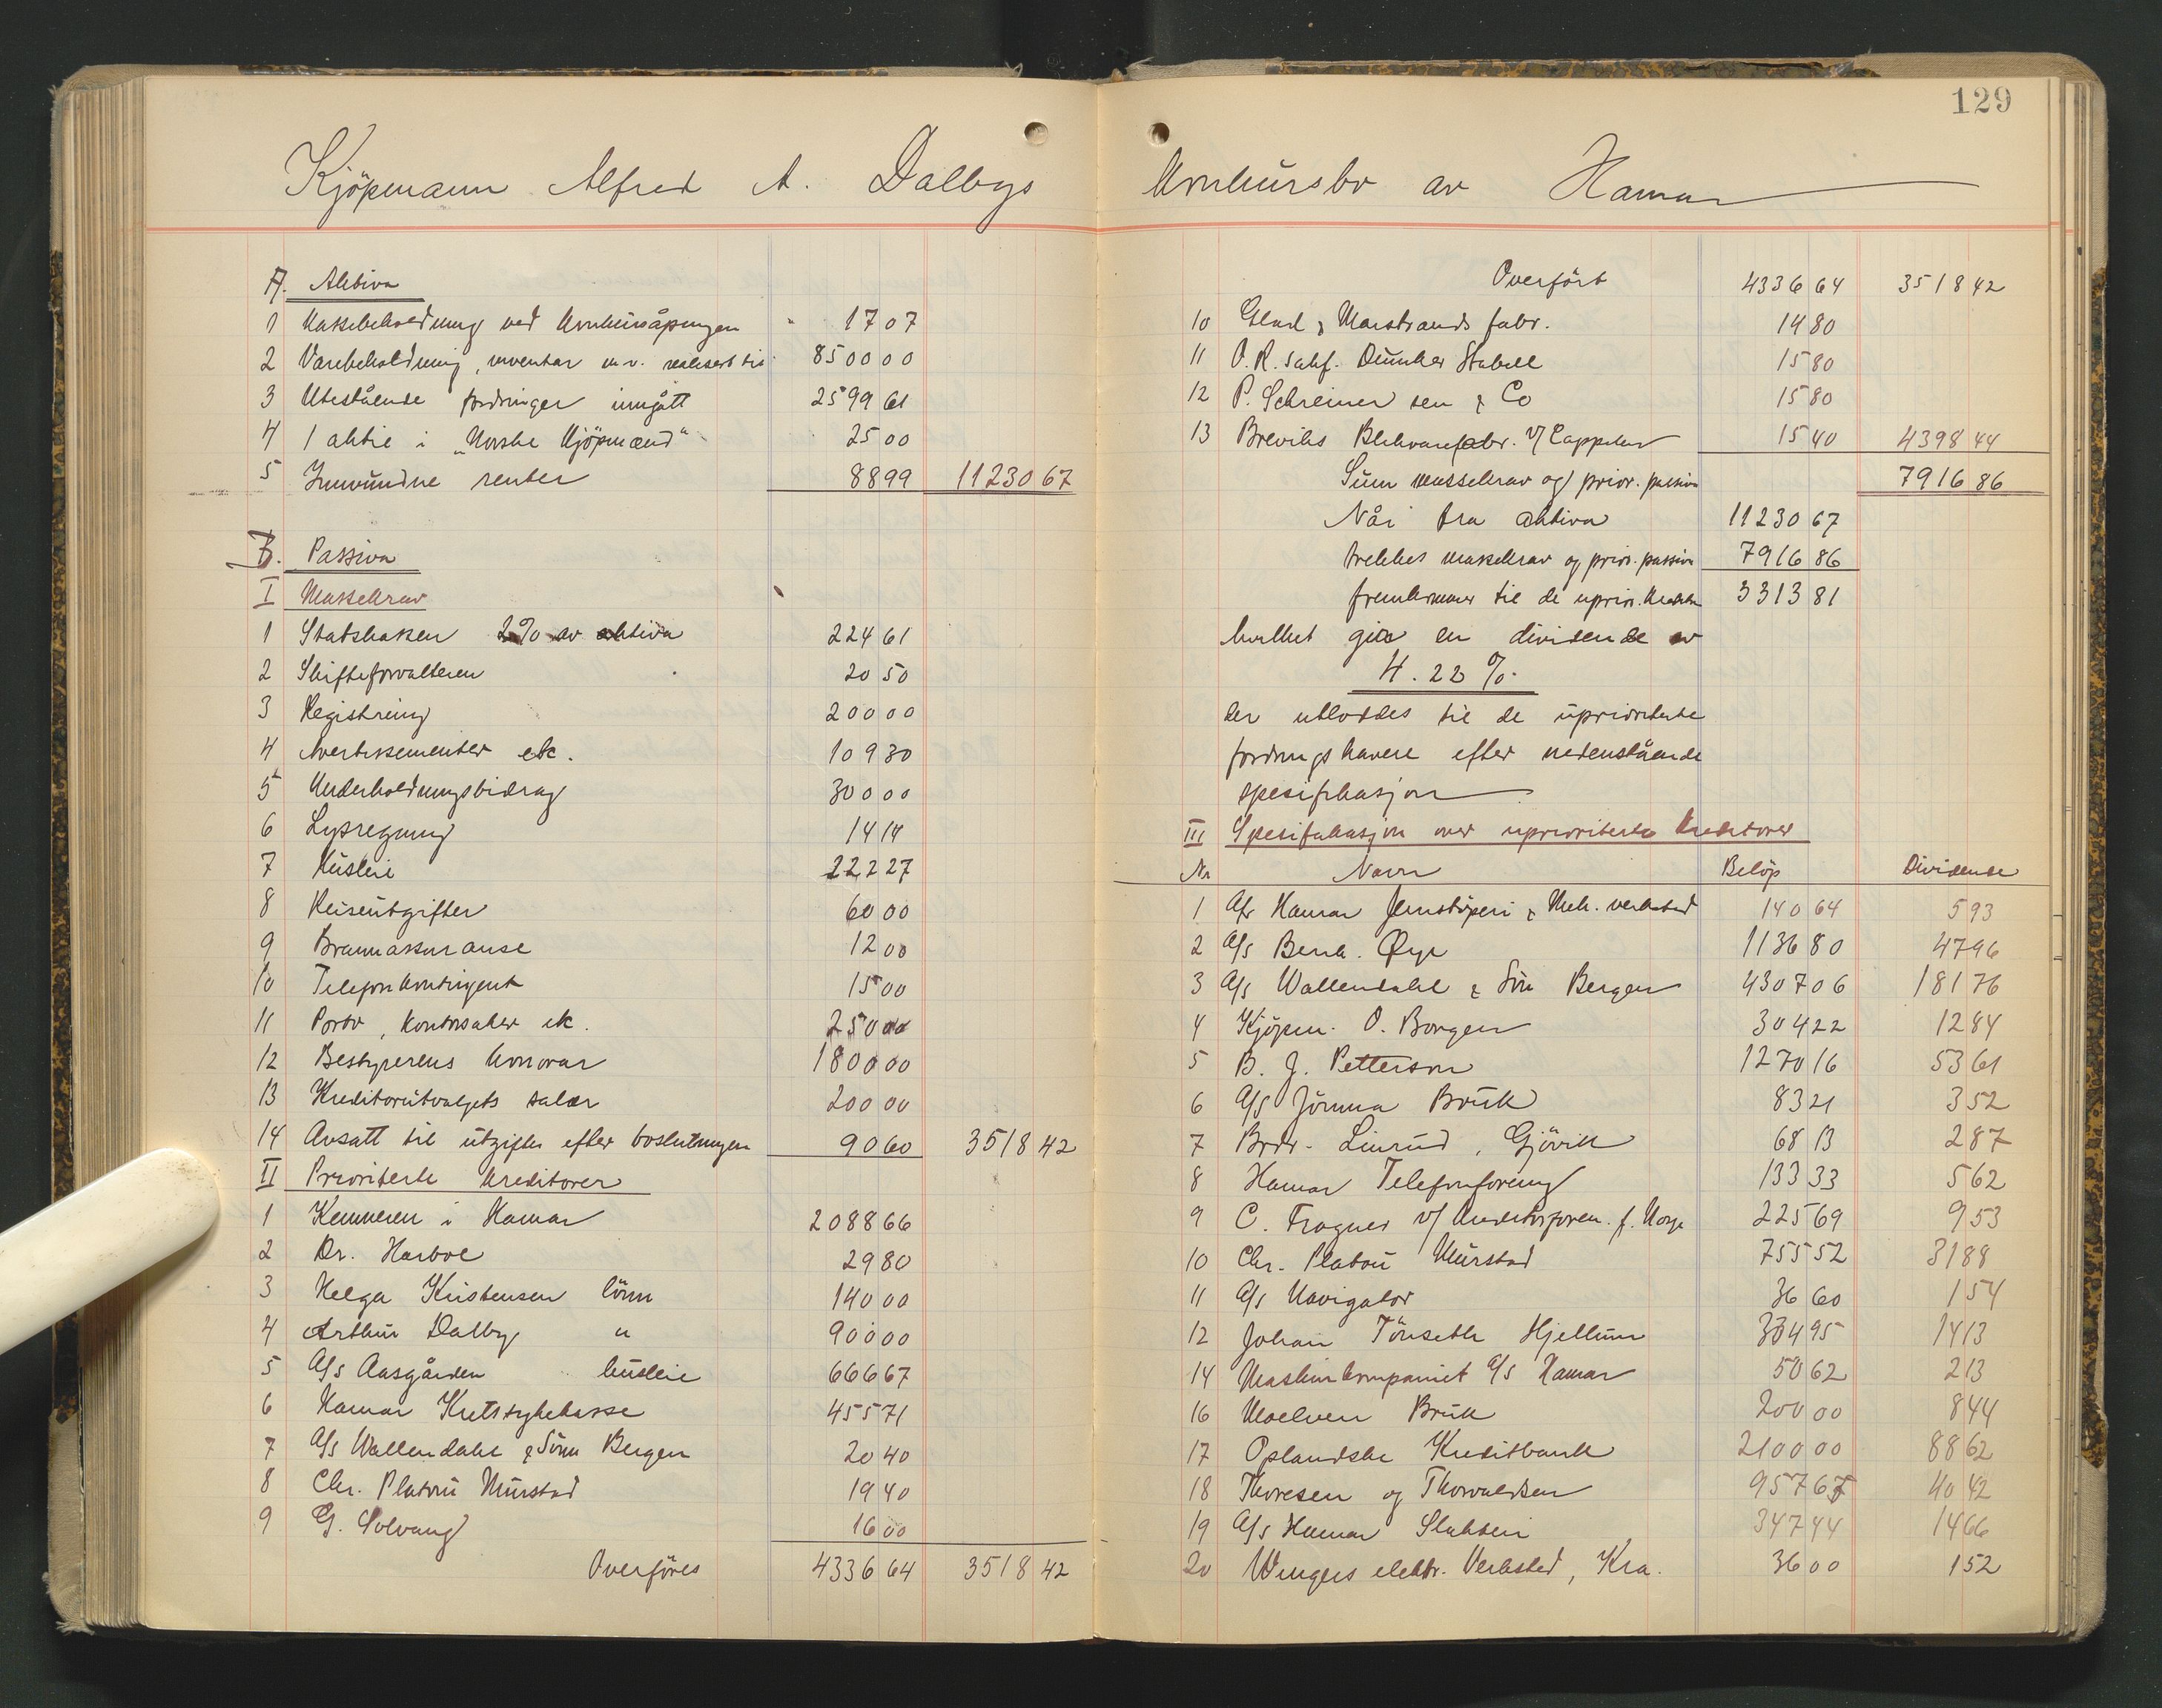 129
Kjöpmann Alfred A. Dalbys Konkursbo av Hamar
A. Aktiva
1 Kassebeholdning ved konkursåpningen 17 07
2 Varebeholdning, inventar m.v. realisert til 8500 00
3 Utestående fordringer inngått 2599 61
4 1 aktie i "Norske Kjöpmænd" 25 00
5 Innvundne renter 88 99 11230 67
B. Passiva
I Massekrav
1 Statskassen 2% av aktiva 224 61
2 Skifteforvalteren 20 50
3 Registrering 200 00
4 Avertissementer etc. 109 30
5 Underholdningsbidrag 300 00
6 Lysregning 14 14
7 Husleie 222 27
8 Reiseutgifter 60 00
9 Brannassuranse 12 00
10 Telefonkontingent 15 00
11 Porto, kontorsaker etc. 250 00
12 Bestyrerens honorar 1800 00
13 Kreditorutvalgets salær 200 00
14 Avsatt til utgifter efter boslutningen 90 60 3518 42
II Prioriterte kreditorer
1 Kemneren i Hamar 2088 66
2 Dr. Harboe 29 80
3 Helga Kristensen lönn 140 00
4 Arthur Dalby " 900 00
5 A/s Aasgården husleie 666 67
6 Hamar Kretssykekasse 455 71
7 A/s Wallendahl & Sönn Bergen 20 40
8 Chr. Platou Murstad 19 40
9 G. Solvang 16 00
Overföres 4336 64 3518 42
Overfört 4336 64 3518 42
10 Glad & Marstrands fabr. 14 80
11 O. R. sakf. Dunker Stabell 15 80
12 P. Schreiner sen & Co 15 80
13 Breviks Blikvarefabr. v/ Cappelen 15 40 4398 44
Sum massekrav og prior. passiva 7916 86
Når fra aktiva 11230 67
trekkes massekrav og prior. passiva 7916 86
fremkommer til de uprior. kreditorer 3313 81
hvilket gir en dividende av
4.22 %
der utloddes til de uprioriterte
fordringshavere efter nedenstående
spesifikasjon
III Spesifikasjon over uprioriterte kreditorer
Nr Navn Belöp Dividende
1 A/s Hamar Jernstöperi & Mek. verksted 140 64 5 93
2 A/s Bernh. Øye 1136 80 47 96
3 A/s Wallendahl & Sön Bergen 4307 06 181 76
4 Kjöpm. O. Borgen 304 22 12 84
5 B. J. Petterson 1270 16 53 61
6 A/s Jömna Bruk 83 21 3 52
7 Brdr. Linrud, Gjövik 68 13 2 87
8 Hamar Telefonforening 133 33 5 62
9 C. Fragner v/ Kreditorforen. f. Norge 225 69 9 53
10 Chr. Platou Murstad 755 52 31 88
11 A/s Navigator 36 60 1 54
12 Johan Tönseth Hjellum 334 95 14 13
14 Maskinkompaniet A/s Hamar 50 62 2 13
16 Moelven Bruk 200 00 8 44
17 Oplandske Kreditbank 2100 00 88 62
18 Thoresen og Thorvaldsen 957 67 40 42
19 A/s Hamar Slakteri 347 44 14 66
20 Wingers elektr. Verksted, Kra. 36 00 1 52